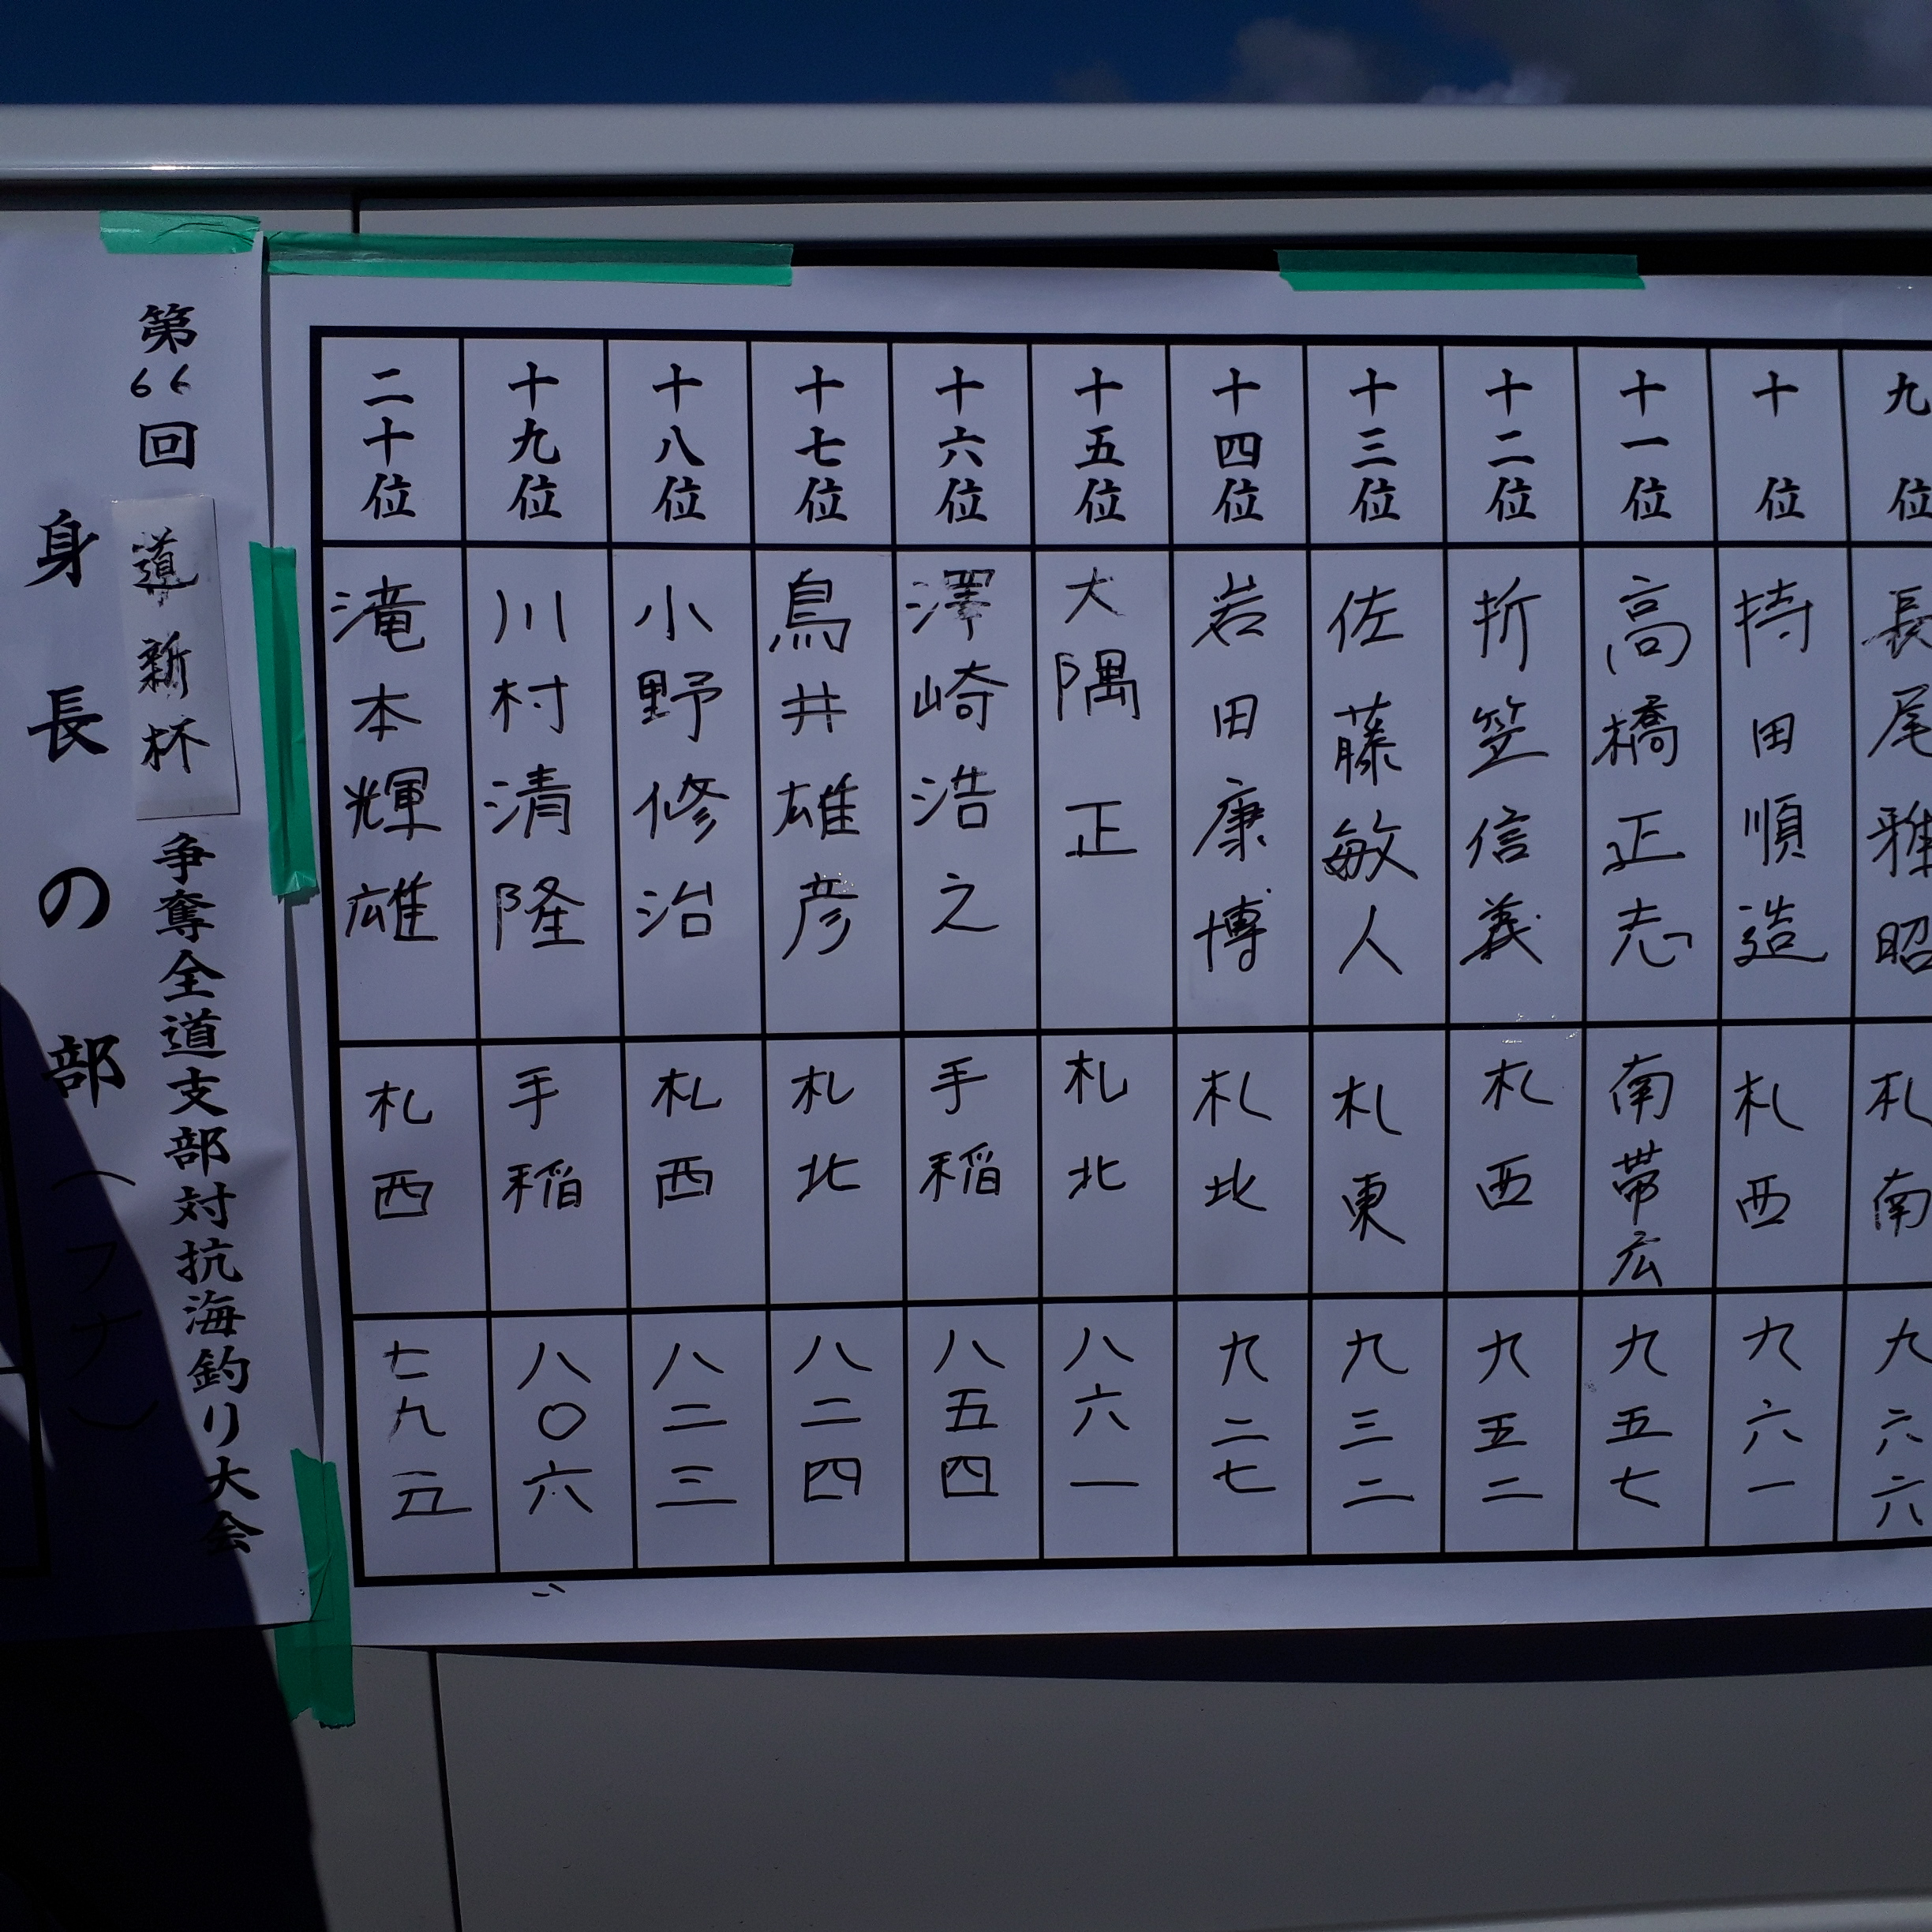 九位
長尾雅昭
札南
九六六
十位
持田順造
札西
九六一
十一位
高橋正志
南帯広
九五七
十二位
折笠信義
札西
九五二
十三位
佐藤敏人
札東
九三二
十四位
岩田康博
札北
九二七
十五位
大隅正
札北
八六一
十六位
澤崎浩之
手稲
八五四
十七位
鳥井雄彦
札北
八二四
十八位
小野修治
札西
八二三
十九位
川村清隆
手稲
八〇六
二十位
滝本輝雄
札西
七九五
第66回 道新杯 争奪全道支部対抗海釣り大会
身長の部(フナ)